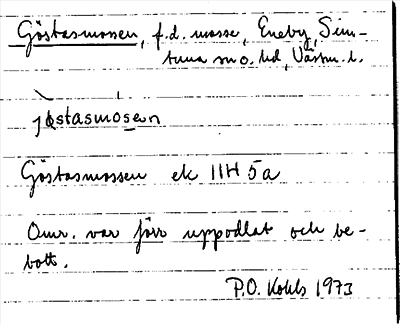 Göstasmossen, f.d. mosse, Eneby, Sim-
tuna sn o. hd, Västm. l.
jöstasmósen
Göstasmossen ek 11H 5a
Omr. var förr uppodlat och be-
bott.
P.O. Kohls 1973